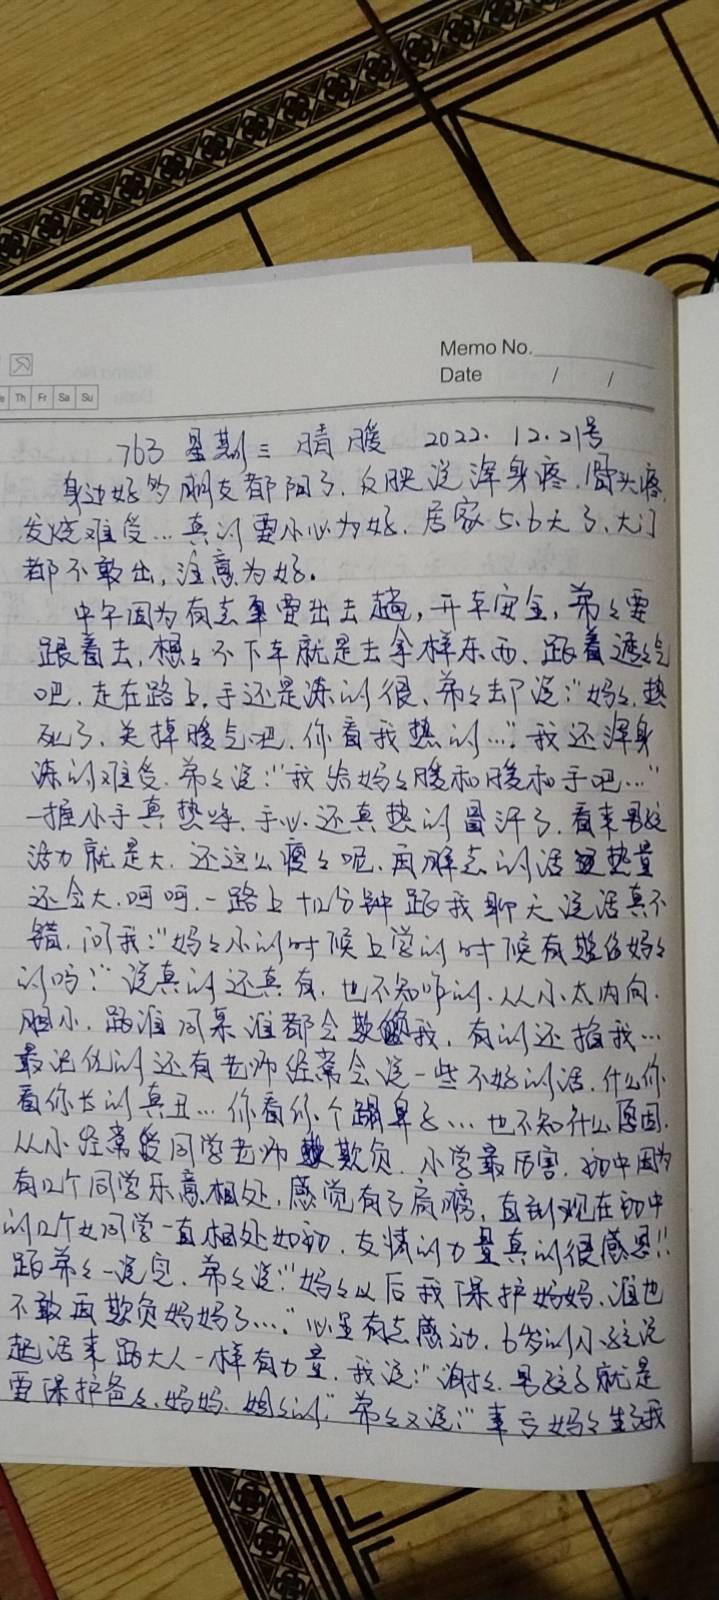 Memo No.
Date / /
Th Fr Sa Su
763 星期三 晴暖 2022.12.21号
身边好多朋友都阳了,反映说浑身疼,骨头疼,
发烧难受…真的要小心为好,居家5.6天了,大门
都不敢出,注意为好。
中午因为有点事要出去趟,开车安全,弟々要
跟着去,想々不下车就是去拿样东西,跟着透々气
吧,走在路上,手还是冻的很,弟々却说:"妈々,热
死了,关掉暖气吧,你看我热的…"我还浑身
冻的难受,弟々说:"我给妈々暖和暖和手吧…"
一握小手真热哮,手心还真热的冒汗了,看来男孩
活力就是大,还这么瘦々呢,再胖点的话热量
还会大,呵呵,一路上十几分钟跟我聊天说话真不
错,问我:"妈々小的时候上学的时候有欺负妈々
的吗?"说真的还真有,也不知咋的,从小太内向,
胆小,跟谁同桌谁都会欺负我,有的还掐我…
最过份的还有老师经常会说一些不好的话,什么你
看你长的真丑…你看你个蹋鼻子…也不知什么原因,
从小经常受同学老师欺负,小学最厉害,初中因为
有几个同学乐意相处,感觉有了肩膀,直到现在初中
的几个女同学一直相处如初,友情的力量真的很感恩!!
跟弟々一说完,弟々说:"妈々以后我保护妈妈,谁也
不敢再欺负妈妈了…."心里有点感动,6岁的小孩说
起话来跟大人一样有力量,我说:"谢々,男孩子就是
要保护爸々,妈妈,姐々的"弟々又说:"幸亏妈々生了我